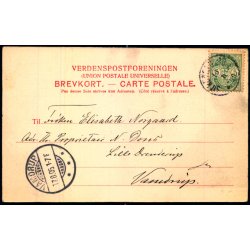 VERDENSPOSTFORENINGEN
(UNION POSTALE UNIVERSELLE)
BREVKORT. — CARTE POSTALE.
Paa denne Side skrives kun Adressen. (Côté réservé à l'adresse.)
Til Frøken Elisabeth Norgaard
Adr. Hr. Proprietær N.
Lille
Vamdrup.